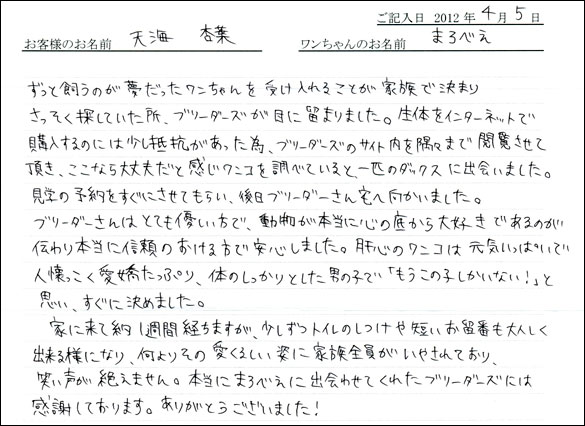 ご記入日 2012 年 4 月 5 日
お客様のお名前 天海 杏葉 ワンちゃんのお名前 まろべえ
ずっと飼うのが夢だったワンちゃんを受け入れることが家族で決まり
さっそく探していた所、ブリーダーズが目に留まりました。生体をインターネットで
購入するのには少し抵抗があった為、ブリーダーズのサイト内を隅々まで閲覧させて
頂き、ここなら大丈夫だと感じワンコを調べていると一匹のダックスに出会いました。
見学の予約をすぐにさせてもらい、後日ブリーダーさん宅へ向かいました。
ブリーダーさんはとても優しい方で、動物が本当に心の底から大好きであるのが
伝わり本当に信頼のおける方で安心しました。肝心のワンコは元気いっぱいで
人懐っこく愛嬌たっぷり、体のしっかりとした男の子で「もうこの子しかいない!」と
思い、すぐに決めました。
家に来て約1週間経ちますが、少しずつトイレのしつけや短いお留番も大人しく
出来る様になり、何よりその愛くるしい姿に家族全員がいやされており、
笑い声が絶えません。本当にまろべえに出会わせてくれたブリーダーズには
感謝しております。ありがとうございました!